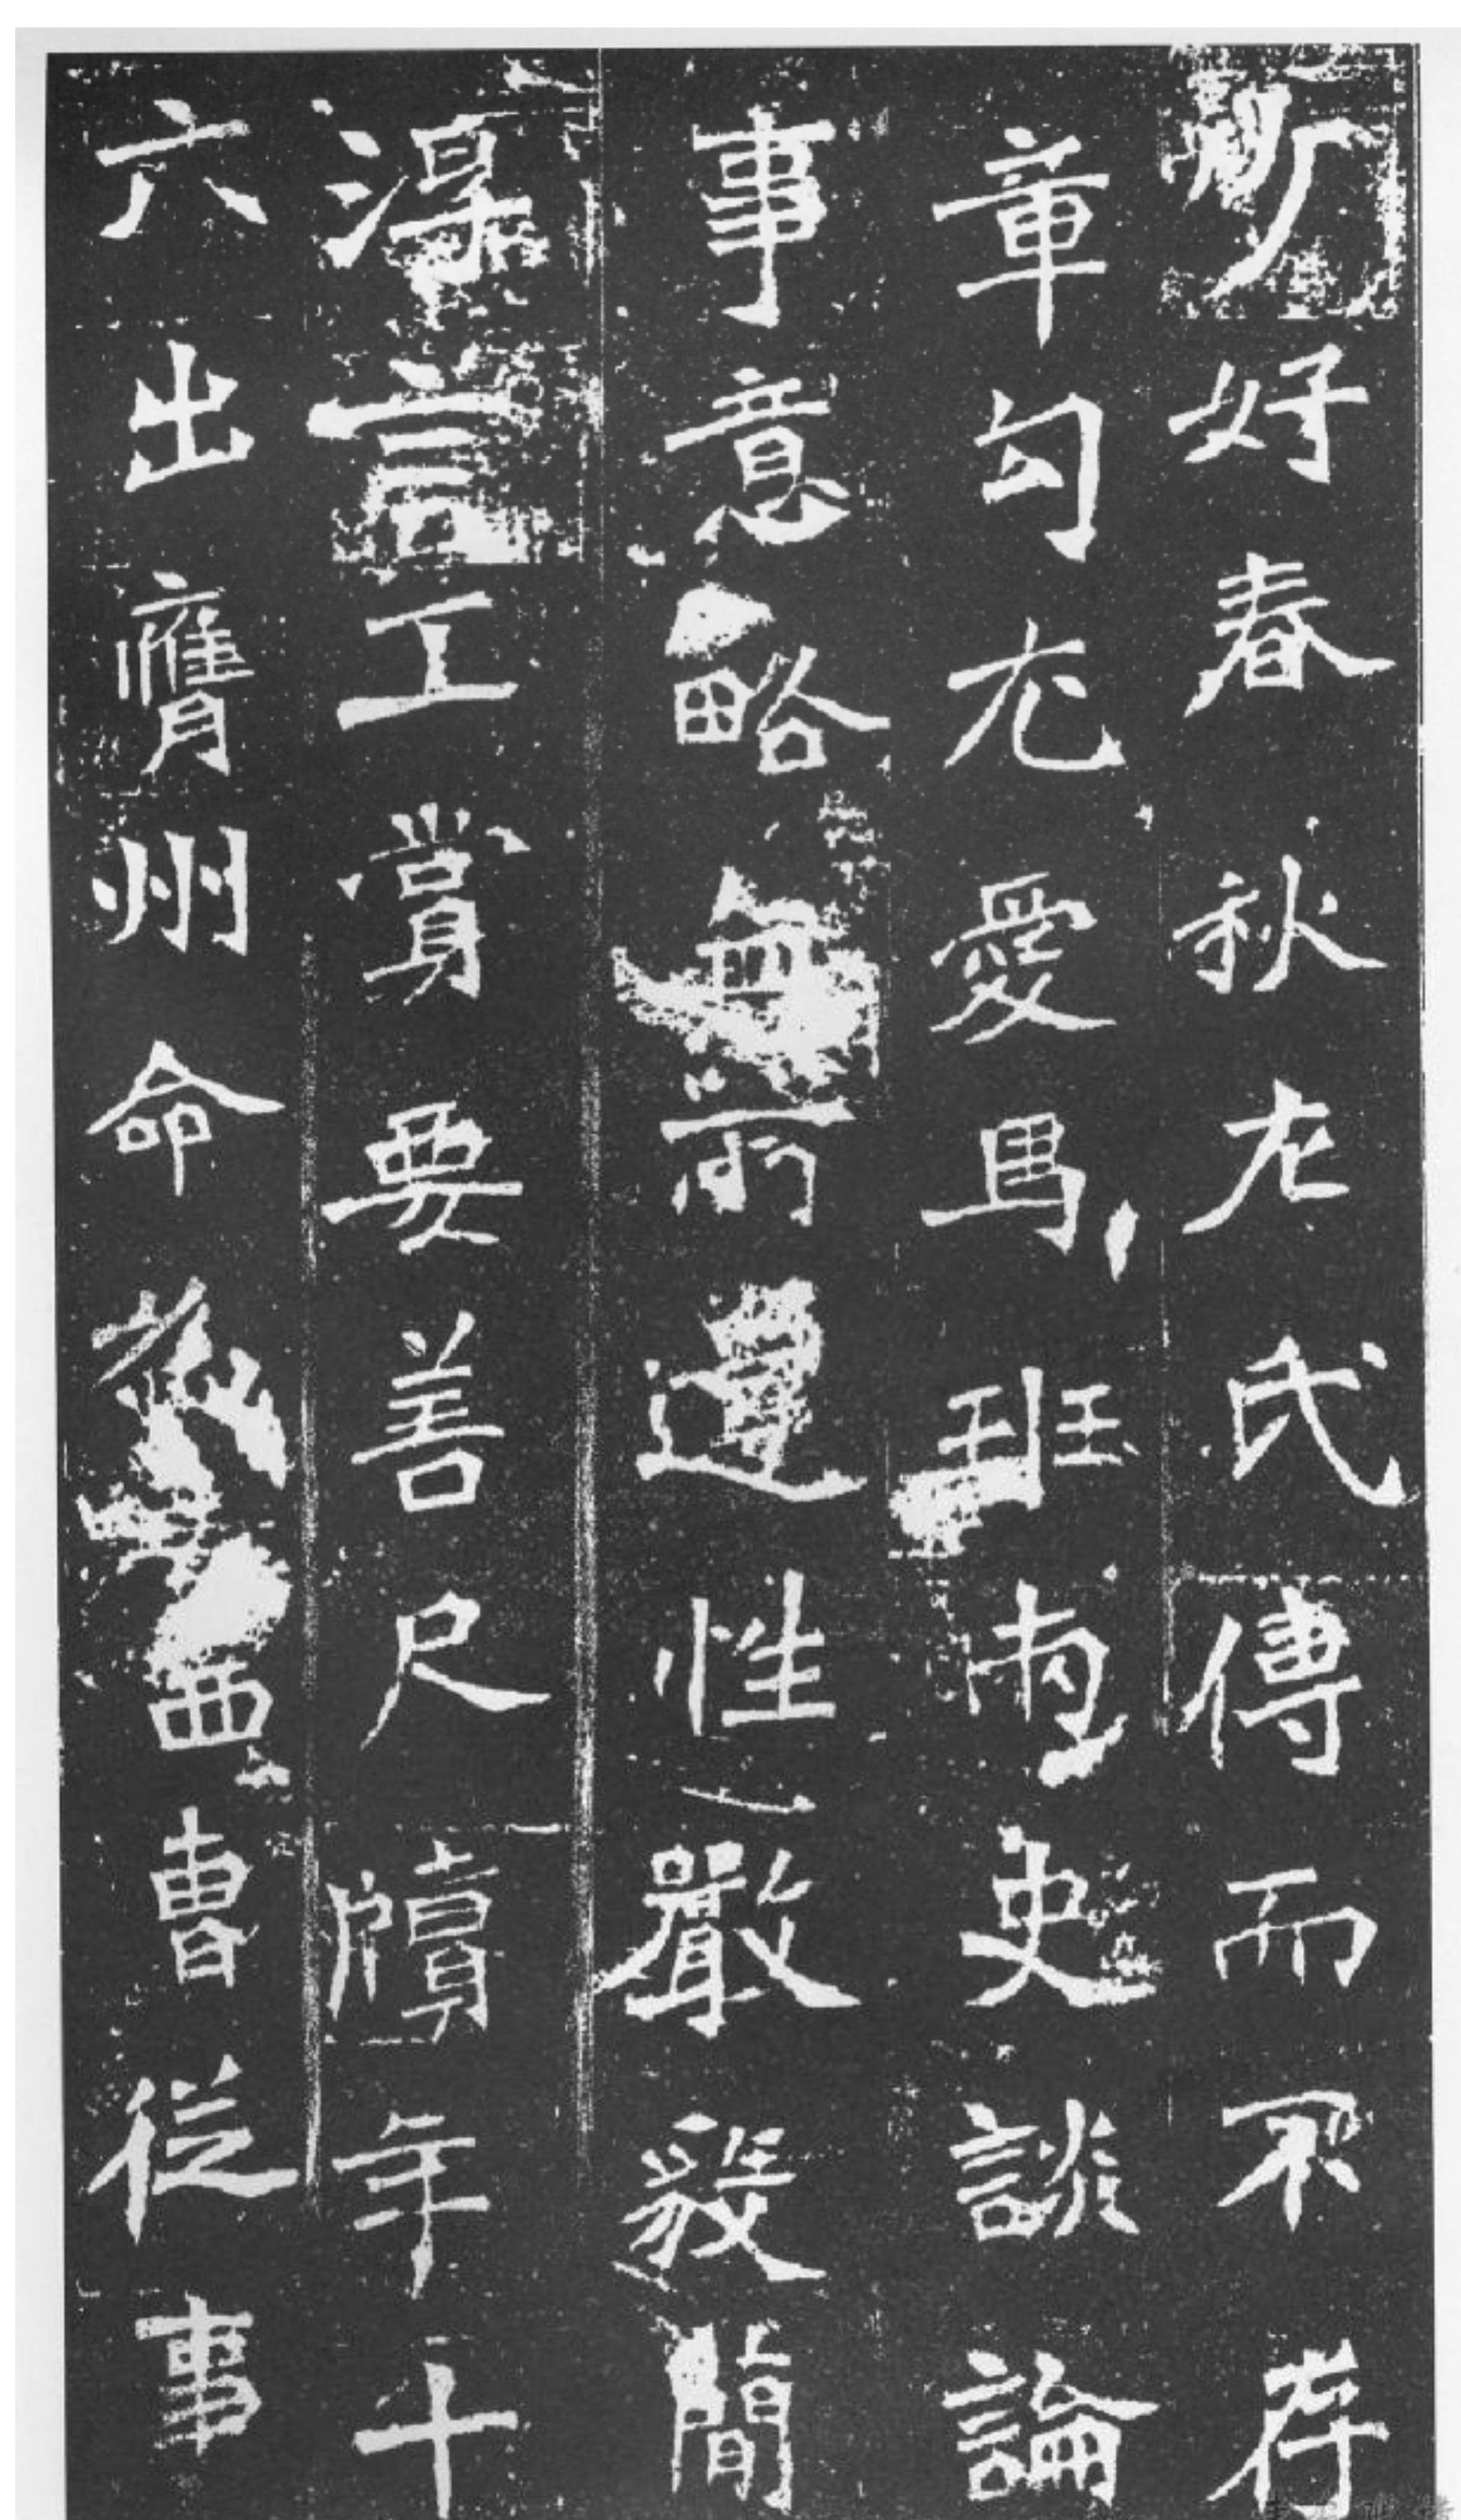 少好春秋左氏傳而不存
章句尤愛馬班兩史談論
事意略無所遺性嚴毅簡
淂言工賞要善尺牘年十
六出膺州命為西曹從事